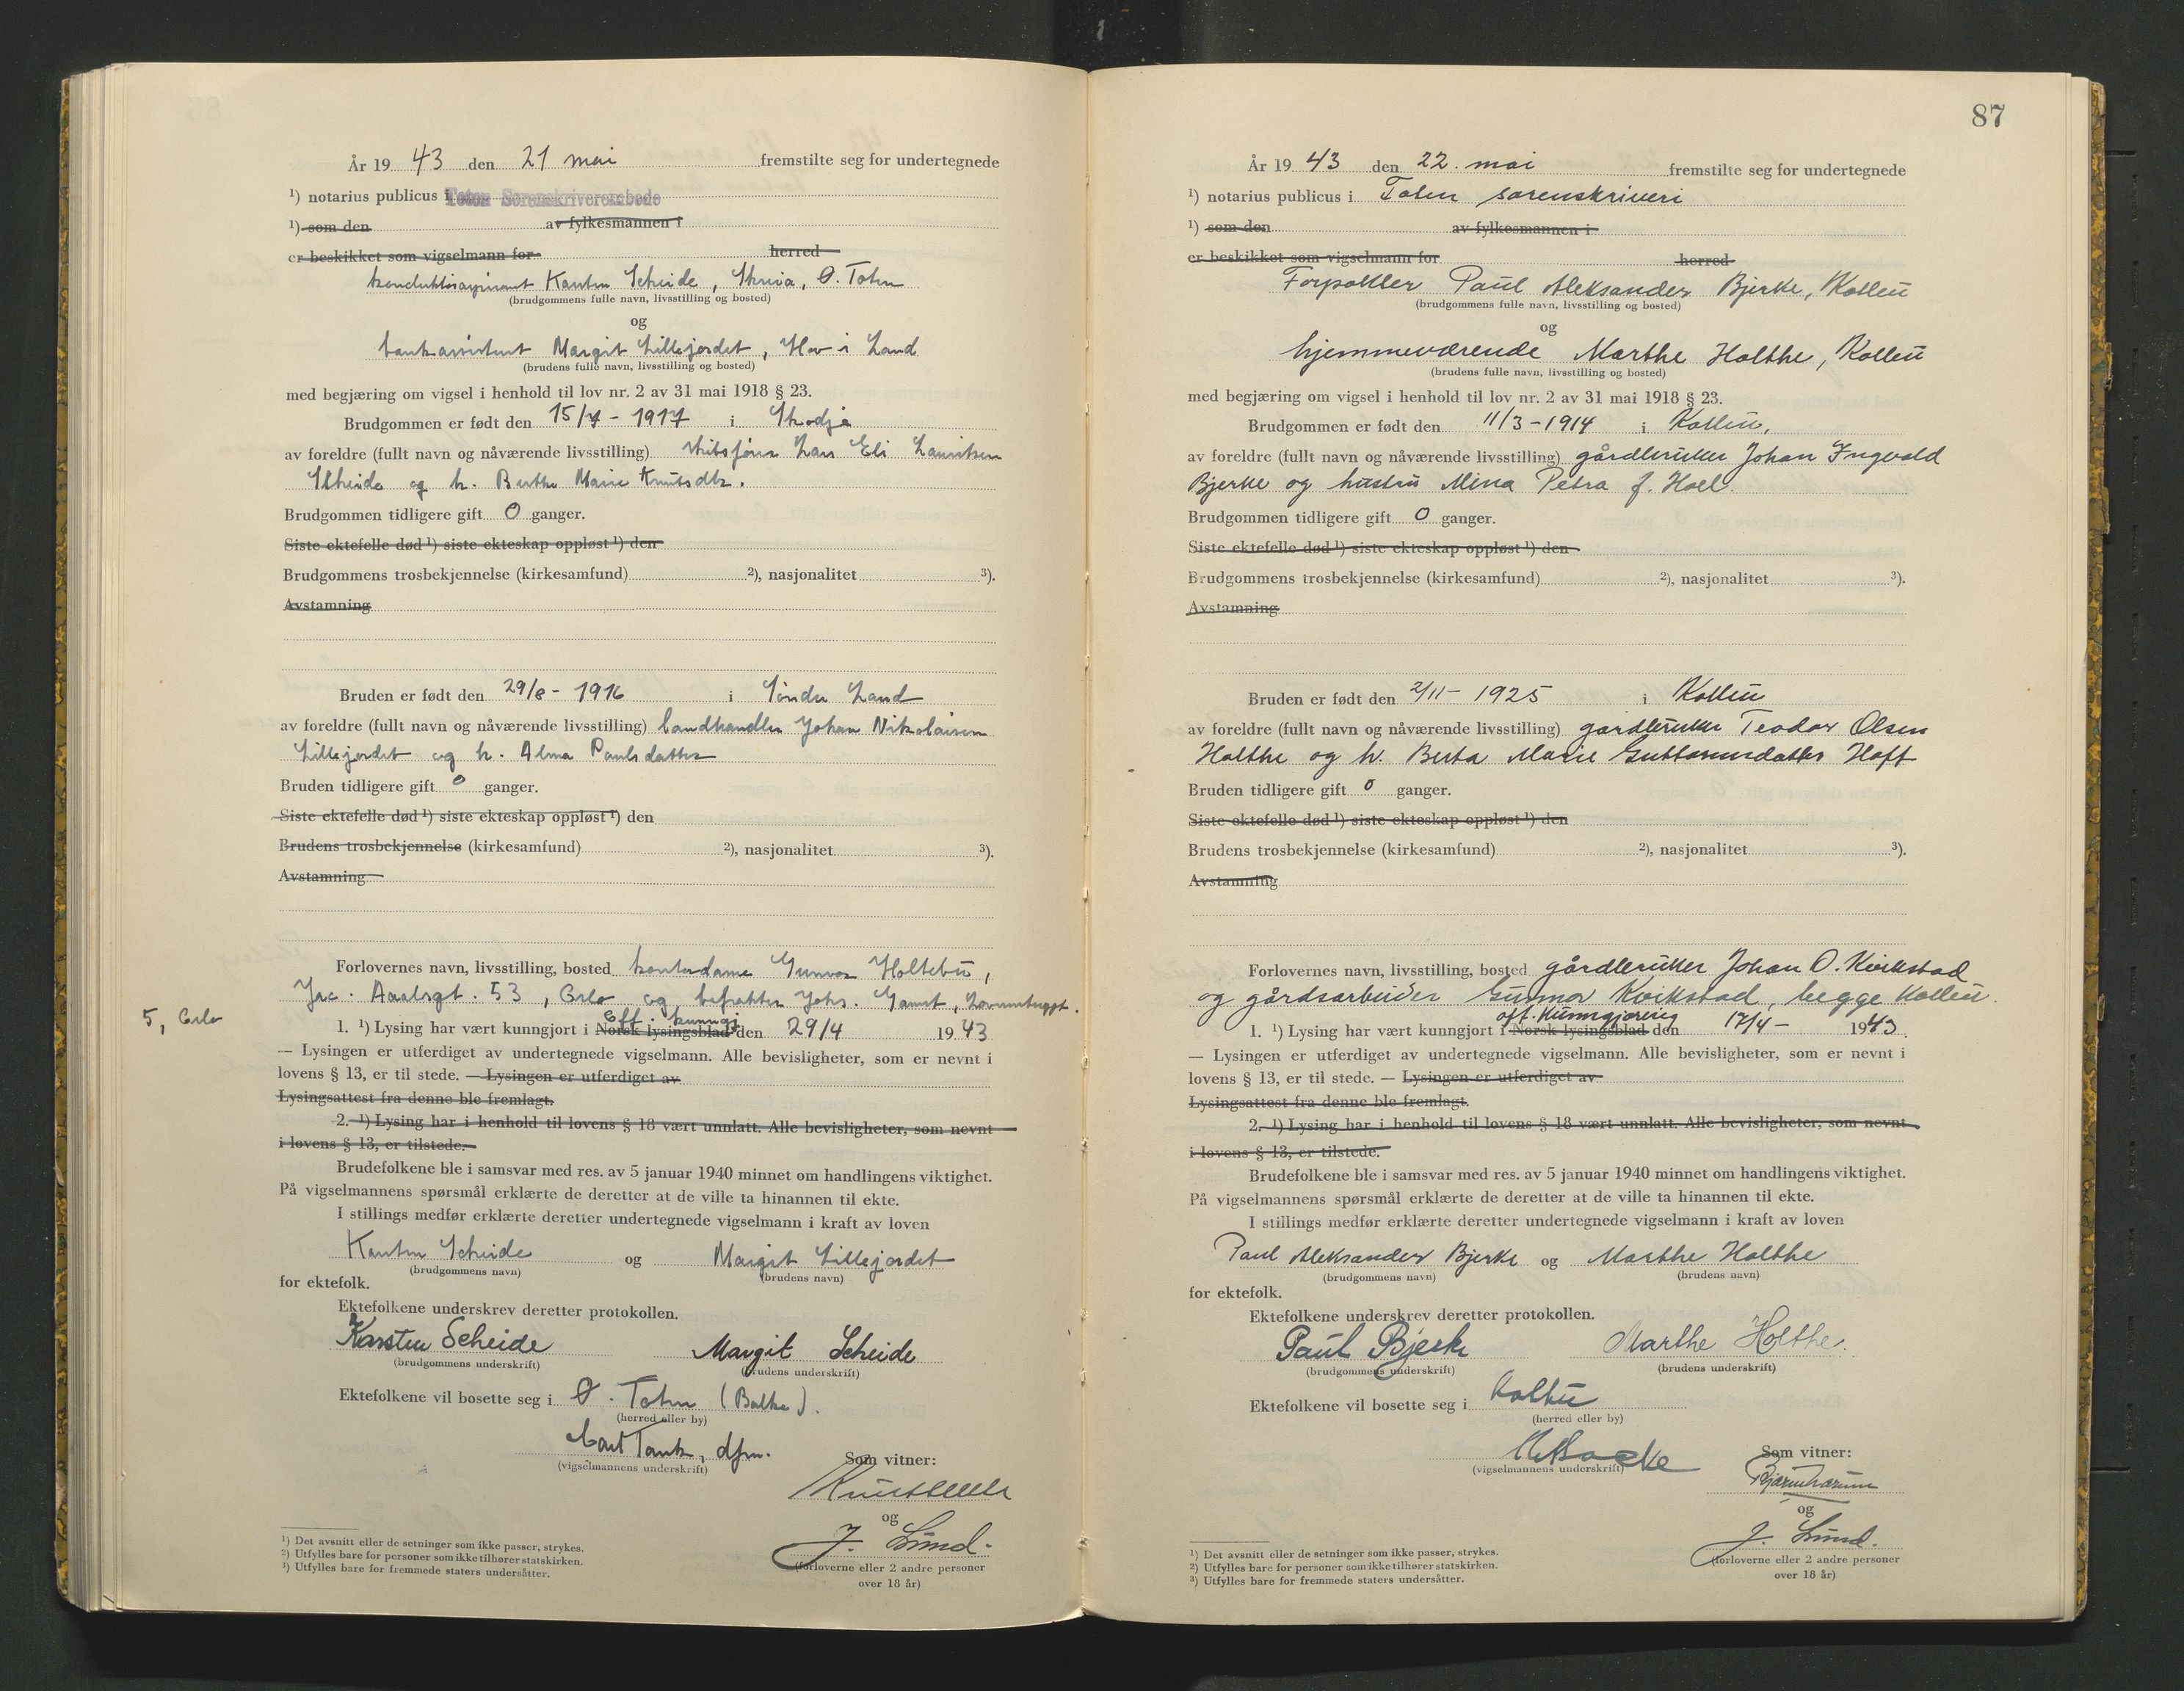 År 19 43 den 21 mai fremstilte seg for undertegnede
¹) notarius publicus i Toten Sorenskriverembede
¹) som den av fylkesmannen i
er beskikket som vigselmann for herred
Karsten Scheide, Skreia, Ø. Toten
(brudgommens fulle navn, livsstilling og bosted)
og
bankassistent Margit Lillejordet, Hov i Land
(brudens fulle navn, livsstilling og bosted)
med begjæring om vigsel i henhold til lov nr. 2 av 31 mai 1918 § 23.
Brudgommen er født den 15/7 - 1917 i Skodje
av foreldre (fullt navn og nåværende livsstilling) skibsfører Lars Eli Lauritsen
Scheide og h. Berthe Marie Knutsdtr.
Brudgommen tidligere gift 0 ganger.
Siste ektefelle død ¹) siste ekteskap oppløst ¹) den
Brudgommens trosbekjennelse (kirkesamfund) ²), nasjonalitet ³).
Avstamning
Bruden er født den 29/8 - 1916 i Søndre Land
av foreldre (fullt navn og nåværende livsstilling) landhandler Johan Nikolaisen
Lillejordet og h. Alma Paulsdatter
Bruden tidligere gift 0 ganger.
Siste ektefelle død ¹) siste ekteskap oppløst ¹) den
Brudens trosbekjennelse (kirkesamfund) ²), nasjonalitet ³).
Avstamning
Forlovernes navn, livsstilling, bosted kontordame Gunvor Holtebu,
Jac. Aalsgt. 53, Oslo og befrakter Johs.
5, Oslo
off. kunngj
1. ¹) Lysing har vært kunngjort i Norsk lysingsblad den 29/4 1943
— Lysingen er utferdiget av undertegnede vigselmann. Alle bevisligheter, som er nevnt i
lovens § 13, er til stede. — Lysingen er utferdiget av
Lysingsattest fra denne ble fremlagt.
2. ¹) Lysing har i henhold til lovens § 18 vært unnlatt. Alle bevisligheter, som nevnt
i lovens § 13, er tilstede.
Brudefolkene ble i samsvar med res. av 5 januar 1940 minnet om handlingens viktighet.
På vigselmannens spørsmål erklærte de deretter at de ville ta hinannen til ekte.
I stillings medfør erklærte deretter undertegnede vigselmann i kraft av loven
Karsten Scheide og Margit Lillejordet
(brudgommens navn) (brudens navn)
for ektefolk.
Ektefolkene underskrev deretter protokollen.
Karsten Scheide Margit Scheide
(brudgommens underskrift) (brudens underskrift)
Ektefolkene vil bosette seg i Ø. Toten (Balke).
(herred eller by)
Carl Tank, dfm.
(vigselmannens underskrift) Som vitner:
og
J. Lund.
(forloverne eller 2 andre personer
over 18 år)
¹) Det avsnitt eller de setninger som ikke passer, strykes.
²) Utfylles bare for personer som ikke tilhører statskirken.
³) Utfylles bare for fremmede staters undersåtter.
87
År 19 43 den 22. mai fremstilte seg for undertegnede
¹) notarius publicus i Toten sorenskriveri
¹) som den av fylkesmannen i
er beskikket som vigselmann for herred
Forpakter Paul Aleksander Bjerke, Kolbu
(brudgommens fulle navn, livsstilling og bosted)
og
hjemmeværende Marthe Holthe, Kolbu
(brudens fulle navn, livsstilling og bosted)
med begjæring om vigsel i henhold til lov nr. 2 av 31 mai 1918 § 23.
Brudgommen er født den 11/3 - 1914 i Kolbu,
av foreldre (fullt navn og nåværende livsstilling) gårdbruker Johan Ingvald
Bjerke og hustru Mina Petra f. Hoel.
Brudgommen tidligere gift 0 ganger.
Siste ektefelle død ¹) siste ekteskap oppløst ¹) den
Brudgommens trosbekjennelse (kirkesamfund) ²), nasjonalitet ³).
Avstamning
Bruden er født den 2/11 - 1925 i Kolbu
av foreldre (fullt navn og nåværende livsstilling) gårdbruker Teodor Olsen
Holthe og h. Berta Marie Guttormsdatter Hoft
Bruden tidligere gift 0 ganger.
Siste ektefelle død ¹) siste ekteskap oppløst ¹) den
Brudens trosbekjennelse (kirkesamfund) ²), nasjonalitet ³).
Avstamning
Forlovernes navn, livsstilling, bosted gårdbruker Johan O. Kvikstad
og gårdsarbeider Gunnar Kvikstad, begge Kolbu.
off. kunngjøring
1. ¹) Lysing har vært kunngjort i Norsk lysingsblad den 17/4 - 1943.
— Lysingen er utferdiget av undertegnede vigselmann. Alle bevisligheter, som er nevnt i
lovens § 13, er til stede. — Lysingen er utferdiget av
Lysingsattest fra denne ble fremlagt.
2. ¹) Lysing har i henhold til lovens § 18 vært unnlatt. Alle bevisligheter, som nevnt
i lovens § 13, er tilstede.
Brudefolkene ble i samsvar med res. av 5 januar 1940 minnet om handlingens viktighet.
På vigselmannens spørsmål erklærte de deretter at de ville ta hinannen til ekte.
I stillings medfør erklærte deretter undertegnede vigselmann i kraft av loven
Paul Aleksander Bjerke og Marthe Holthe
(brudgommens navn) (brudens navn)
for ektefolk.
Ektefolkene underskrev deretter protokollen.
Paul Bjerke Marthe Holthe.
(brudgommens underskrift) (brudens underskrift)
Ektefolkene vil bosette seg i Kolbu
(herred eller by)
(vigselmannens underskrift) Som vitner:
og
J. Lund.
(forloverne eller 2 andre personer
over 18 år)
¹) Det avsnitt eller de setninger som ikke passer, strykes.
²) Utfylles bare for personer som ikke tilhører statskirken.
³) Utfylles bare for fremmede staters undersåtter.